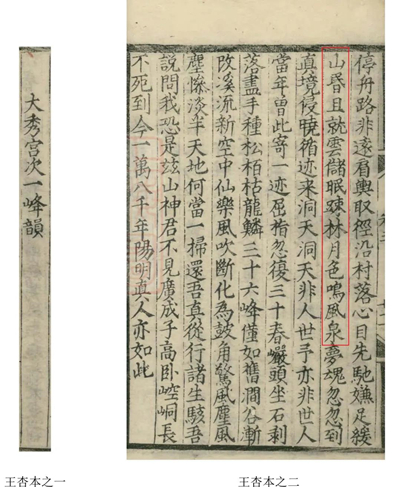 大秀宮次一峰韻
停舟路非遠肩輿取徑沿村落心目先馳嫌足緩
山昏且就雲儲眠疎林月色鳴風泉夢魂忽忽到
真境侵曉循迹来洞天洞天非人世予亦非世人
當年曾此寄一迹屈指忽復三十春巖頭坐石剥
落盡手種松栢枯龍鱗二十六峰僅如舊澗谷漸
改溪流新空中仙樂風吹斷化為鼓角驚風塵風
塵慘淡半天地何當一掃還吾真從行諸生駭吾
説問我恐是兹山神君不見廣成子高卧崆峒長
不死到今一萬八千年陽明真人亦如此
王杏本之一
王杏本之二